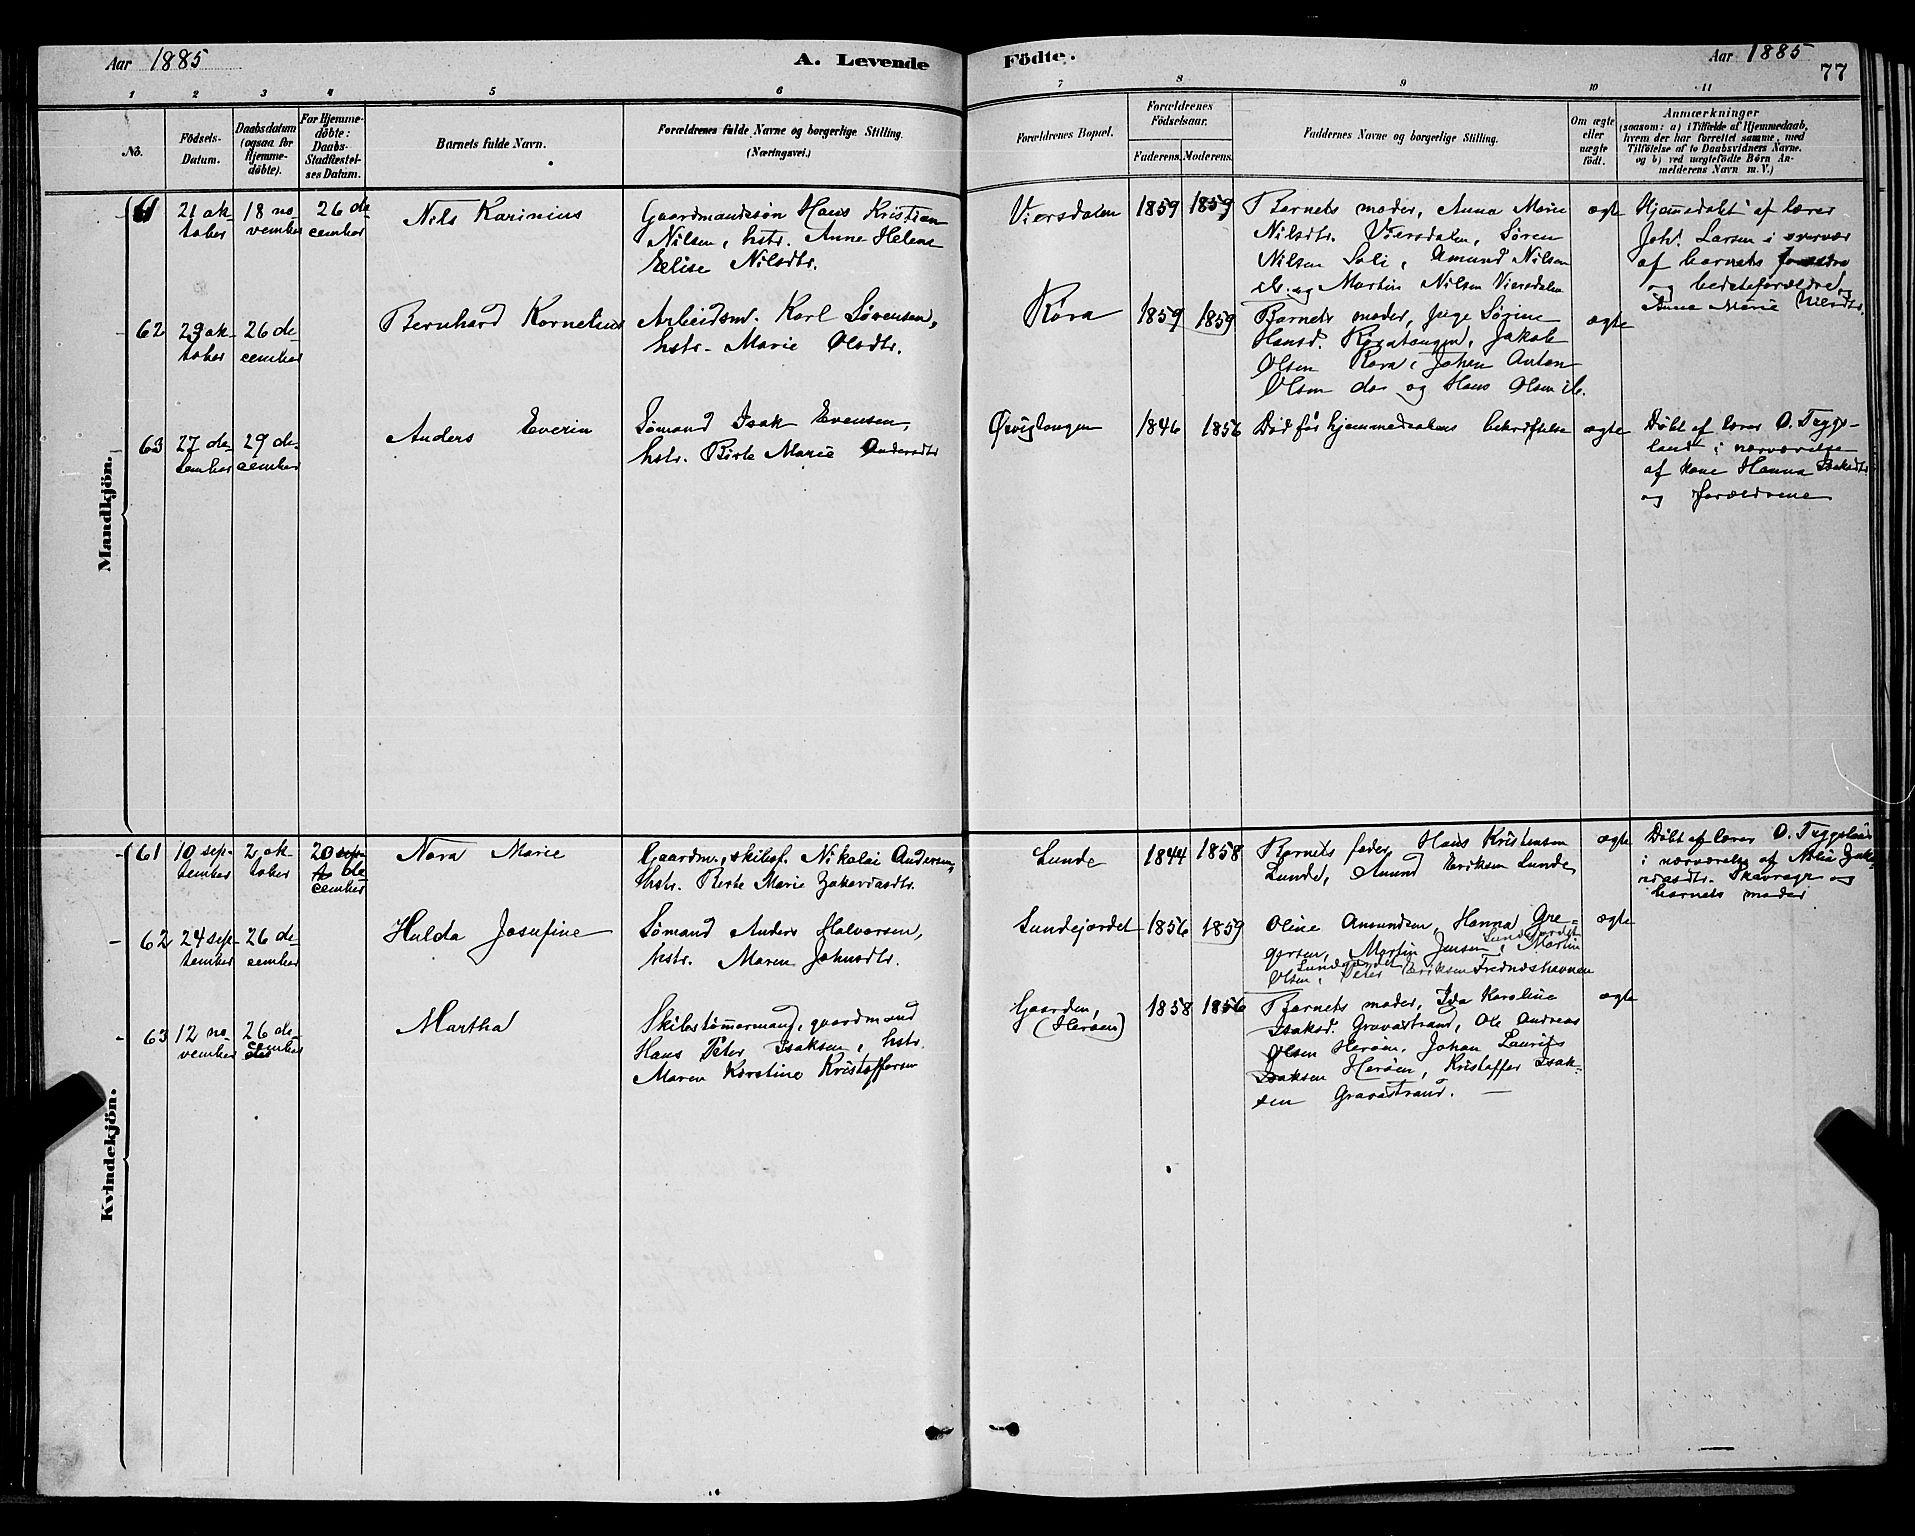 Aar 1885
A. Levende
Födte.
Aar 1885
77
1 2 3 4 5 6
7 8 9 10 11
No.
Födsels-
Datum.
Daabsdatum
(ogsaa for
Hjemme-
döbte).
For Hjemme-
döbte:
Daabs-
Stadfæstel-
ses Datum.
Barnets fulde Navn.
Forældrenes fulde Navne og borgerlige Stilling.
(Næringsvei.)
Forældrenes Bopæl.
Forældrenes
Födselsaar.
Faderens. Moderens.
Faddernes Navne og borgerlige Stilling.
Om ægte
eller
uægte
födt.
Anmærkninger
(saasom: a) i Tilfælde af Hjemmedaab,
hvem der har forrettet samme, med
Tilföielse af to Daabsvidners Navne.
og b) ved uægtefödte Börn An-
melderens Navn m. V.)
Mandkjön.
61
21 ok-
tober
18 no-
vember
26 de-
cember
Nils Karinius
Gaardmandssön Hans Kristian
Nilsen, hstr. Anne Helene
Elise Nilsdtr.
Viersdalen
1859
1859
Barnets moder, Anna Marie
Nilsdtr. Viersdalen, Søren
Nilsen Soli, Amund Nilsen
ib. og Martin Nilsen Viersdalen
ægte
Hjemmedøbt af lærer
Joh. Larsen i
af barnets
og bedsteforældre og
Anna Marie Nilsdtr.
62
29 ok-
tober
26 de-
cember
Bernhard Kornelius
Arbeidsm. Karl Sørensen,
hstr. Marie Olsdtr.
Røra
1859
1859
Barnets moder, pige Sørine
Hansd. Røratangen, Jakob
Olsen Røra, Johan Anton
Olsen do og Hans Olsen ib.
ægte
63
27 de-
cember
29 de-
cember
Anders Everin
Sømand Isak Evensen,
hstr. Birte Marie Andersdtr
Ørvigtangen
1846
1856
Død før hjemmedaabens bekræftelse
ægte
Døbt af lærer O. Tvegs-
land i nærværelse
af kone Hanna Isaksdtr
og forældrene
Kvindekjön.
61
10 sep-
tember
2 ok-
tober
20 sep-
de-
cember
Nora Marie
Gaardm., skibsf. Nikolai Andersen,
hstr. Berte Marie Zakariasdtr.
Lunde
1844
1858
Barnets fader, Hans Kristensen
Lunde, Amund Eriksen Lunde
ægte
Døbt af lærer O.
i nærværelse af Zaka-
riasdtr. Skavrager og
barnets moder
62
24 sep-
tember
26 de-
cember
Hulda Josefine
Sømand Anders Halvorsen,
hstr. Maren Johnsdtr.
Lundejordet
1856
1859
Oline Amundsen, Hanna Gre-
gersen, Martin Jensen Lundejordet, Martin
Olsen Lundejordet, Peter Eriksen Fredrikshavnen
ægte
63
12 no-
vember
26 de-
cember
Martha
Skibstømmermand, gaardmand
Hans Peter Isaksen, hstr.
Maren Kirstine Kristoffersen
Gaarden,
(Herøen)
1858
1856
Barnets moder, Ida Karoline
Isaksd. Gravastrand, Ole Andreas
Olsen Herøen, Johan Laurits
Isaksen Herøen, Kristoffer Isak-
sen Gravastrand.
ægte